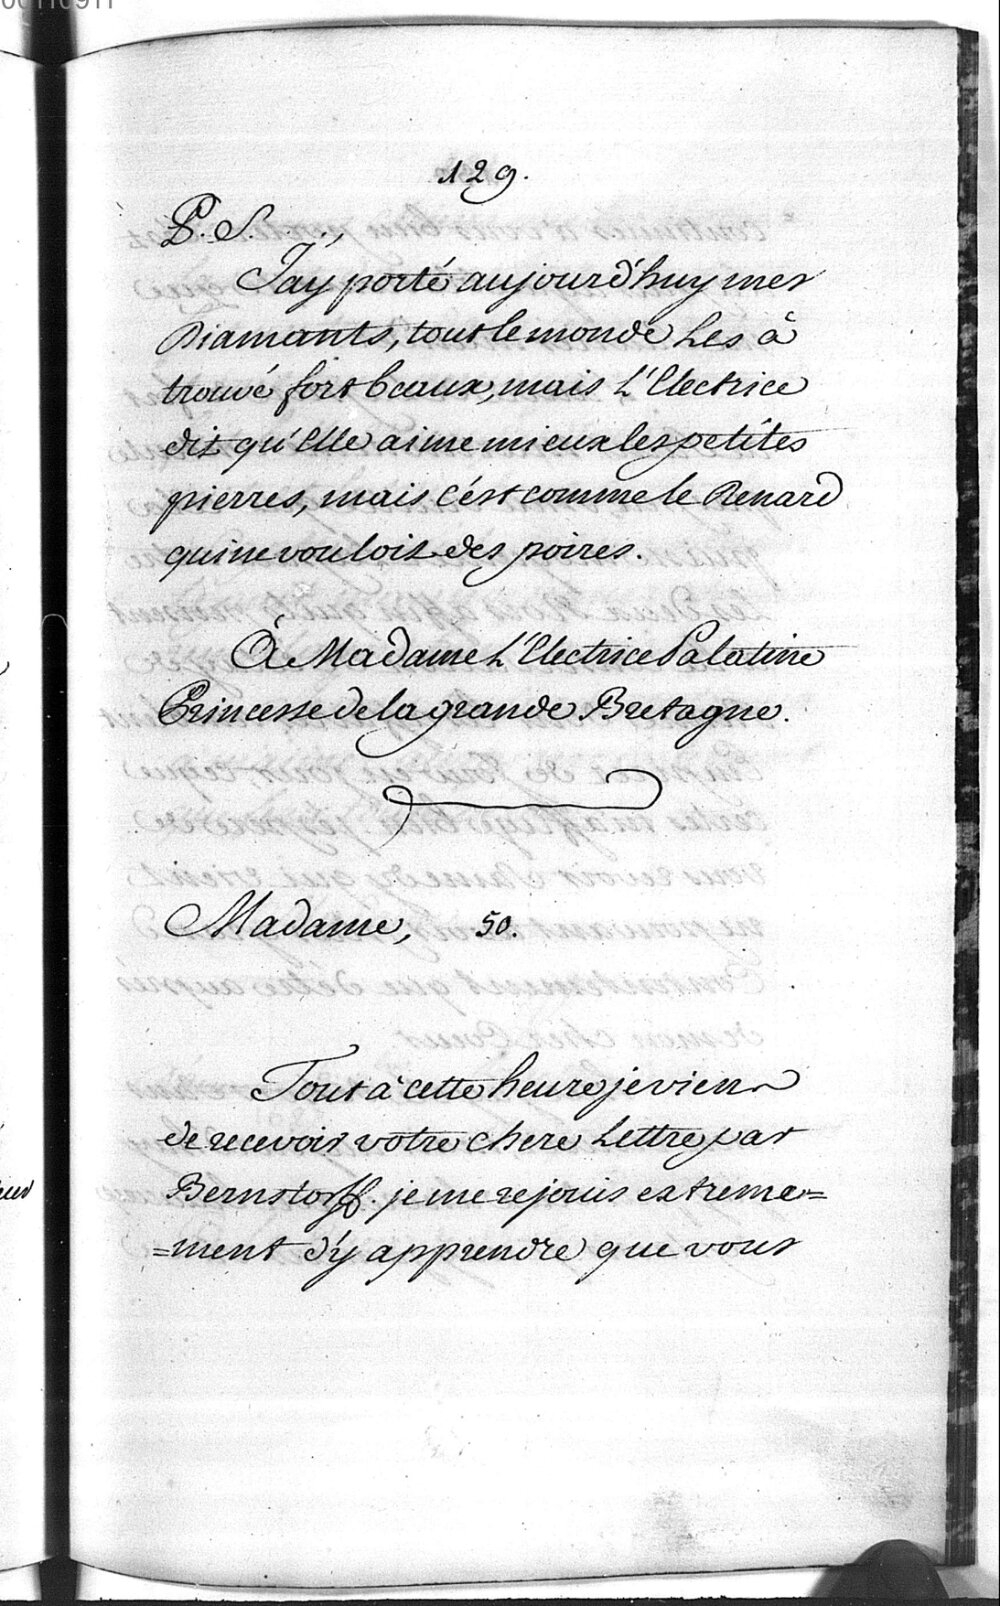 129.
P. S. . . ,
J'ay porté aujourd'huy mes
Diamants, tout le monde Les à
trouvé fort beaux, mais L'Electrice
dit qu'Elle aime mieux les petites
pierres, mais c'ést comme le Renard
qui ne vouloit des poires.
À Madame L'Electrice Palatine
Princesse de la grande Bretagne.
Madame, 50.
Tout à cette heure je viens
de recevoir votre chere Lettre par
Bernstorff. je me rejouis extreme=
=ment d'y apprendre que vous